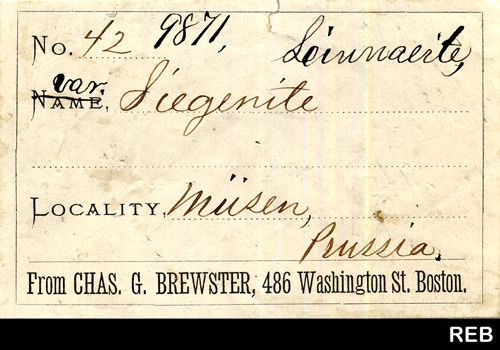 No. 42 9871, Loinnaeite,
var.
NAME, Siegenite
LOCALITY, Müsen,
Prussia.
From CHAS. G. BREWSTER, 486 Washington St. Boston.
REB